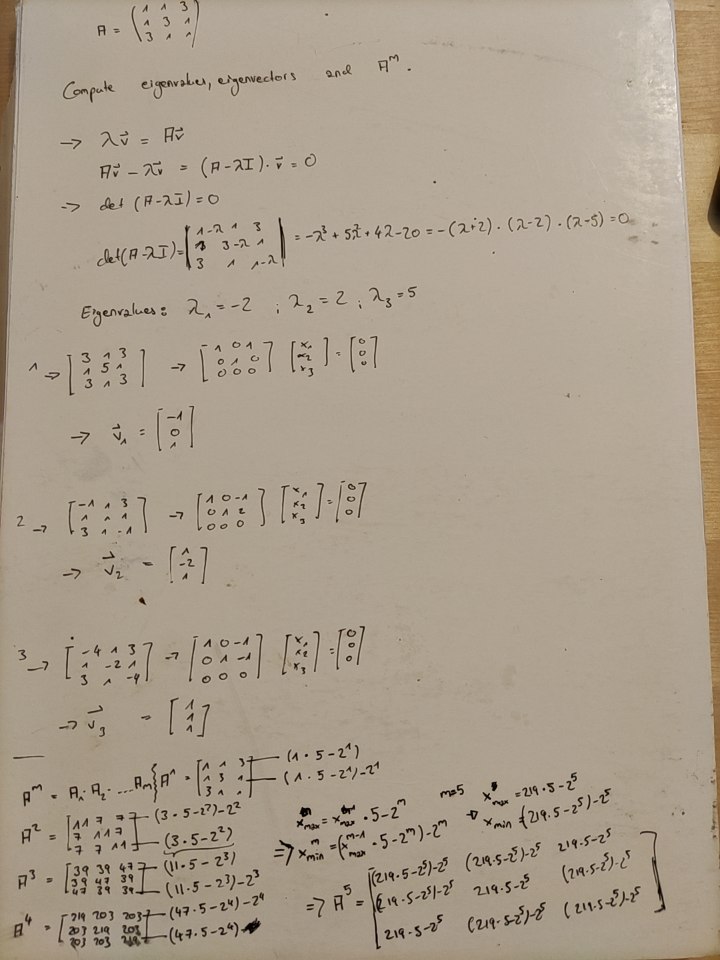 A = ( 1 1 3 ; 1 3 1 ; 3 1 1 )
Compute eigenvalues, eigenvectors and A^m.
→ λv⃗ = Av⃗
Av⃗ - λv⃗ = (A-λI)·v⃗ = 0
→ det (A-λI) = 0
det(A-λI) = | 1-λ 1 3 ; 1 3-λ 1 ; 3 1 1-λ | = -λ³ + 5λ² + 4λ - 20 = -(λ+2)·(λ-2)·(λ-5) = 0
Eigenvalues: λ₁ = -2 ; λ₂ = 2 ; λ₃ = 5
1 → [ 3 1 3 ; 1 5 1 ; 3 1 3 ] → [ 1 0 1 ; 0 1 0 ; 0 0 0 ] [ x₁ ; x₂ ; x₃ ] = [ 0 ; 0 ; 0 ]
→ v⃗₁ = [ -1 ; 0 ; 1 ]
2 → [ -1 1 3 ; 1 1 1 ; 3 1 -1 ] → [ 1 0 -1 ; 0 1 2 ; 0 0 0 ] [ x₁ ; x₂ ; x₃ ] = [ 0 ; 0 ; 0 ]
→ v⃗₂ = [ 1 ; -2 ; 1 ]
3 → [ -4 1 3 ; 1 -2 1 ; 3 1 -4 ] → [ 1 0 -1 ; 0 1 -1 ; 0 0 0 ] [ x₁ ; x₂ ; x₃ ] = [ 0 ; 0 ; 0 ]
→ v⃗₃ = [ 1 ; 1 ; 1 ]
A^m = A₁·A₂·...A_m } A¹ = [ 1 1 3 ; 1 3 1 ; 3 1 1 ] (1·5-2¹) (1·5-2¹)-2¹
A² = [ 11 7 7 ; 7 11 7 ; 7 7 11 ] (3·5-2²)-2² (3·5-2²)
A³ = [ 39 39 47 ; 39 47 39 ; 47 39 39 ] (11·5-2³) (11·5-2³)-2³
A⁴ = [ 219 203 203 ; 203 219 203 ; 203 203 219 ] (47·5-2⁴)-2⁴ (47·5-2⁴)
x^m_max = x^m-1_max · 5-2^m
⇒ x^m_min = (x^m-1_max · 5-2^m)-2^m
m=5 x⁵_max = 219·5-2⁵
→ x_min = (219·5-2⁵)-2⁵
⇒ A⁵ = [ (219·5-2⁵)-2⁵ (219·5-2⁵)-2⁵ 219·5-2⁵ ; (219·5-2⁵)-2⁵ 219·5-2⁵ (219·5-2⁵)-2⁵ ; 219·5-2⁵ (219·5-2⁵)-2⁵ (219·5-2⁵)-2⁵ ]